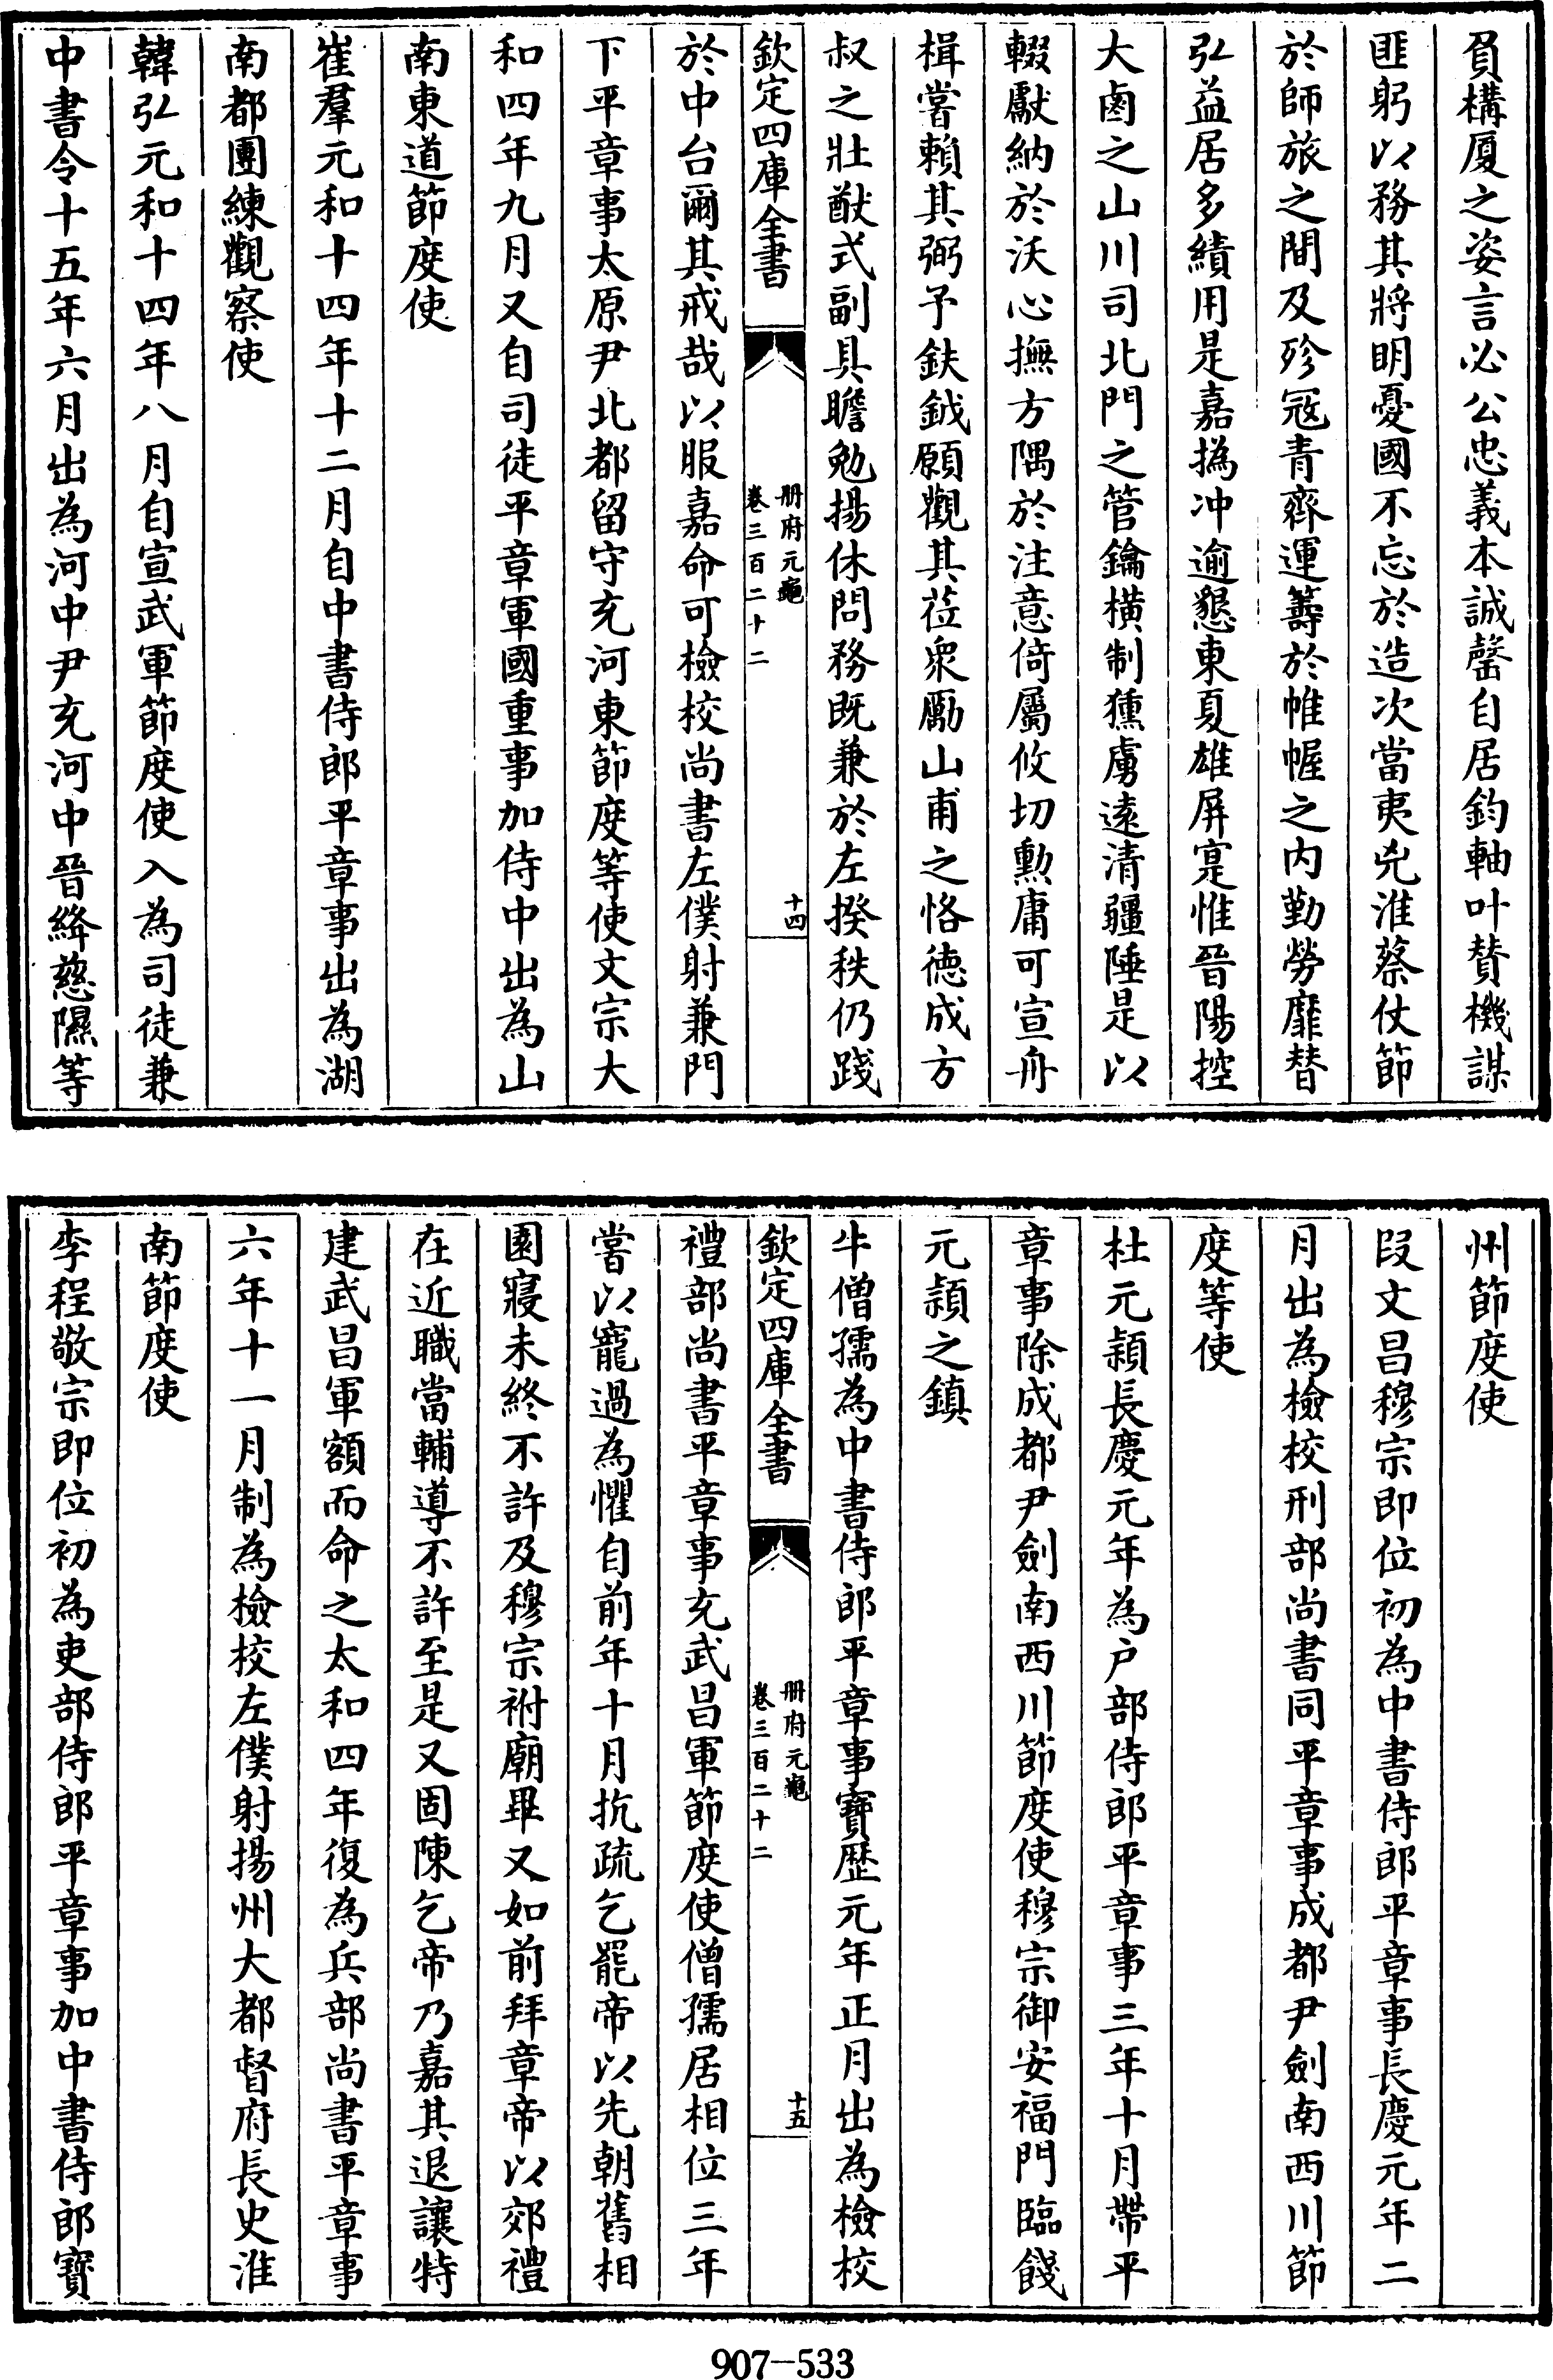 負構厦之姿言必公忠義本誠罄自居鈞軸叶賛機謀
匪躬以務其將明憂國不忘於造次當夷兇淮蔡仗節
於師旅之間及殄冦青齊運籌於帷幄之内勤勞靡替
弘益居多績用是嘉撝冲逾懇東夏雄屏寔惟晉陽控
大鹵之山川司北門之管鑰横制獯虜遠清疆陲是以
輟獻納於沃心撫方隅於注意倚屬攸切勲庸可宣舟
楫嘗賴其弼予鈇鉞願觀其莅衆勵山甫之恪徳成方
叔之壯猷式副具瞻勉揚休問務既兼於左揆秩仍踐
欽定四庫全書
册府元龜
卷三百二十二
十四
於中台爾其戒哉以服嘉命可檢校尚書左僕射兼門
下平章事太原尹北都留守充河東節度等使文宗大
和四年九月又自司徒平章軍國重事加侍中出為山
南東道節度使
崔羣元和十四年十二月自中書侍郎平章事出為湖
南都團練觀察使
韓弘元和十四年八月自宣武軍節度使入為司徒兼
中書令十五年六月出為河中尹充河中晉絳慈隰等
州節度使
段文昌穆宗即位初為中書侍郎平章事長慶元年二
月出為檢校刑部尚書同平章事成都尹劍南西川節
度等使
杜元頴長慶元年為户部侍郎平章事三年十月帶平
章事除成都尹劍南西川節度使穆宗御安福門臨餞
元頴之鎮
牛僧孺為中書侍郎平章事寶歴元年正月出為檢校
欽定四庫全書
册府元龜
卷三百二十二
十五
禮部尚書平章事充武昌軍節度使僧孺居相位三年
嘗以寵過為懼自前年十月抗疏乞罷帝以先朝舊相
園寢未終不許及穆宗祔廟畢又如前拜章帝以郊禮
在近職當輔導不許至是又固陳乞帝乃嘉其退讓特
建武昌軍額而命之太和四年復為兵部尚書平章事
六年十一月制為檢校左僕射揚州大都督府長史淮
南節度使
李程敬宗即位初為吏部侍郎平章事加中書侍郎寶
907-533